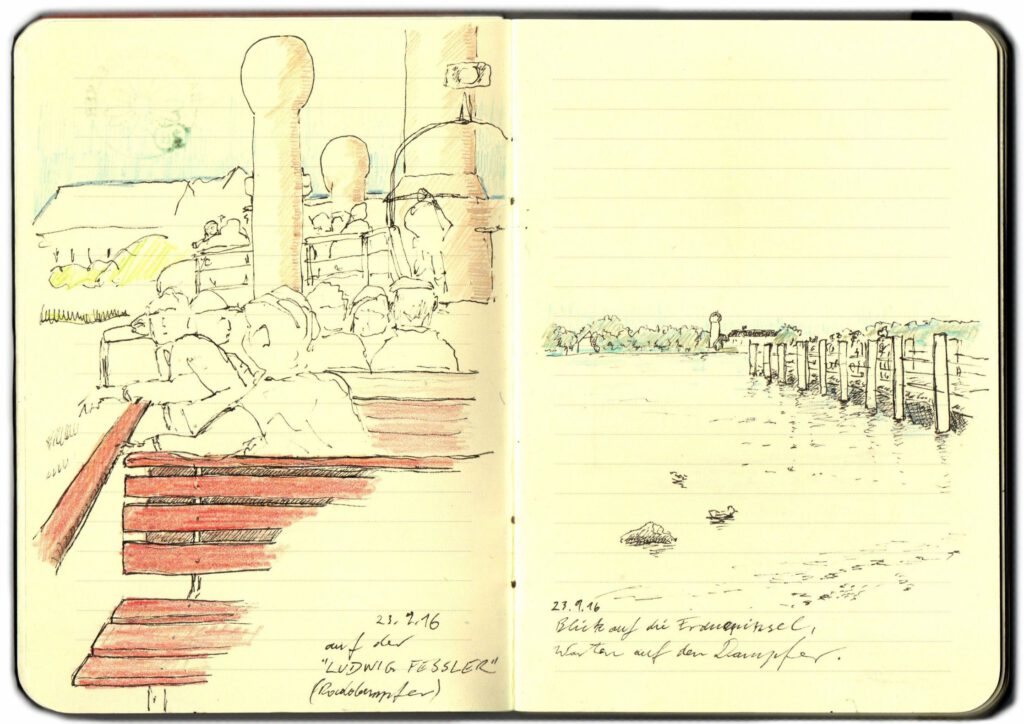 23.9.16
auf der
"LUDWIG FESSLER"
(Raddampfer)
23.9.16
Blick auf die Fraueninsel,
Warten auf den Dampfer.